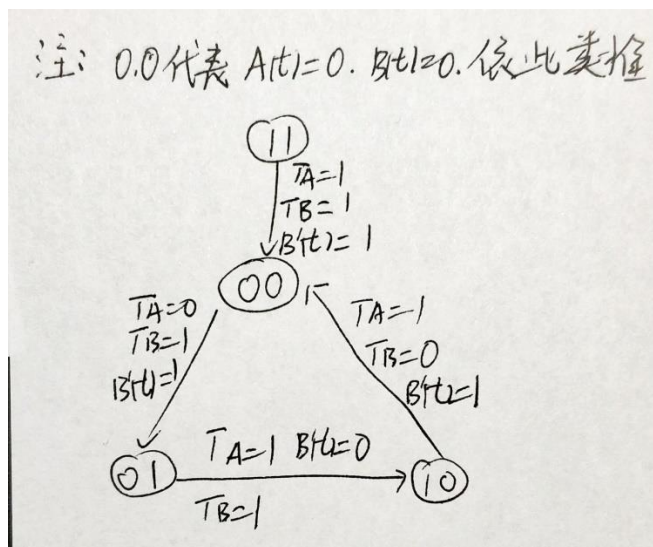 注: 0.0代表 A(t)=0. B(t)=0. 依此类推
11
TA=1
TB=1
B'(t)=1
00
TA=0
TB=1
B'(t)=1
TA=1
TB=0
B'(t)=1
01
TA=1 B'(t)=0
TB=1
10